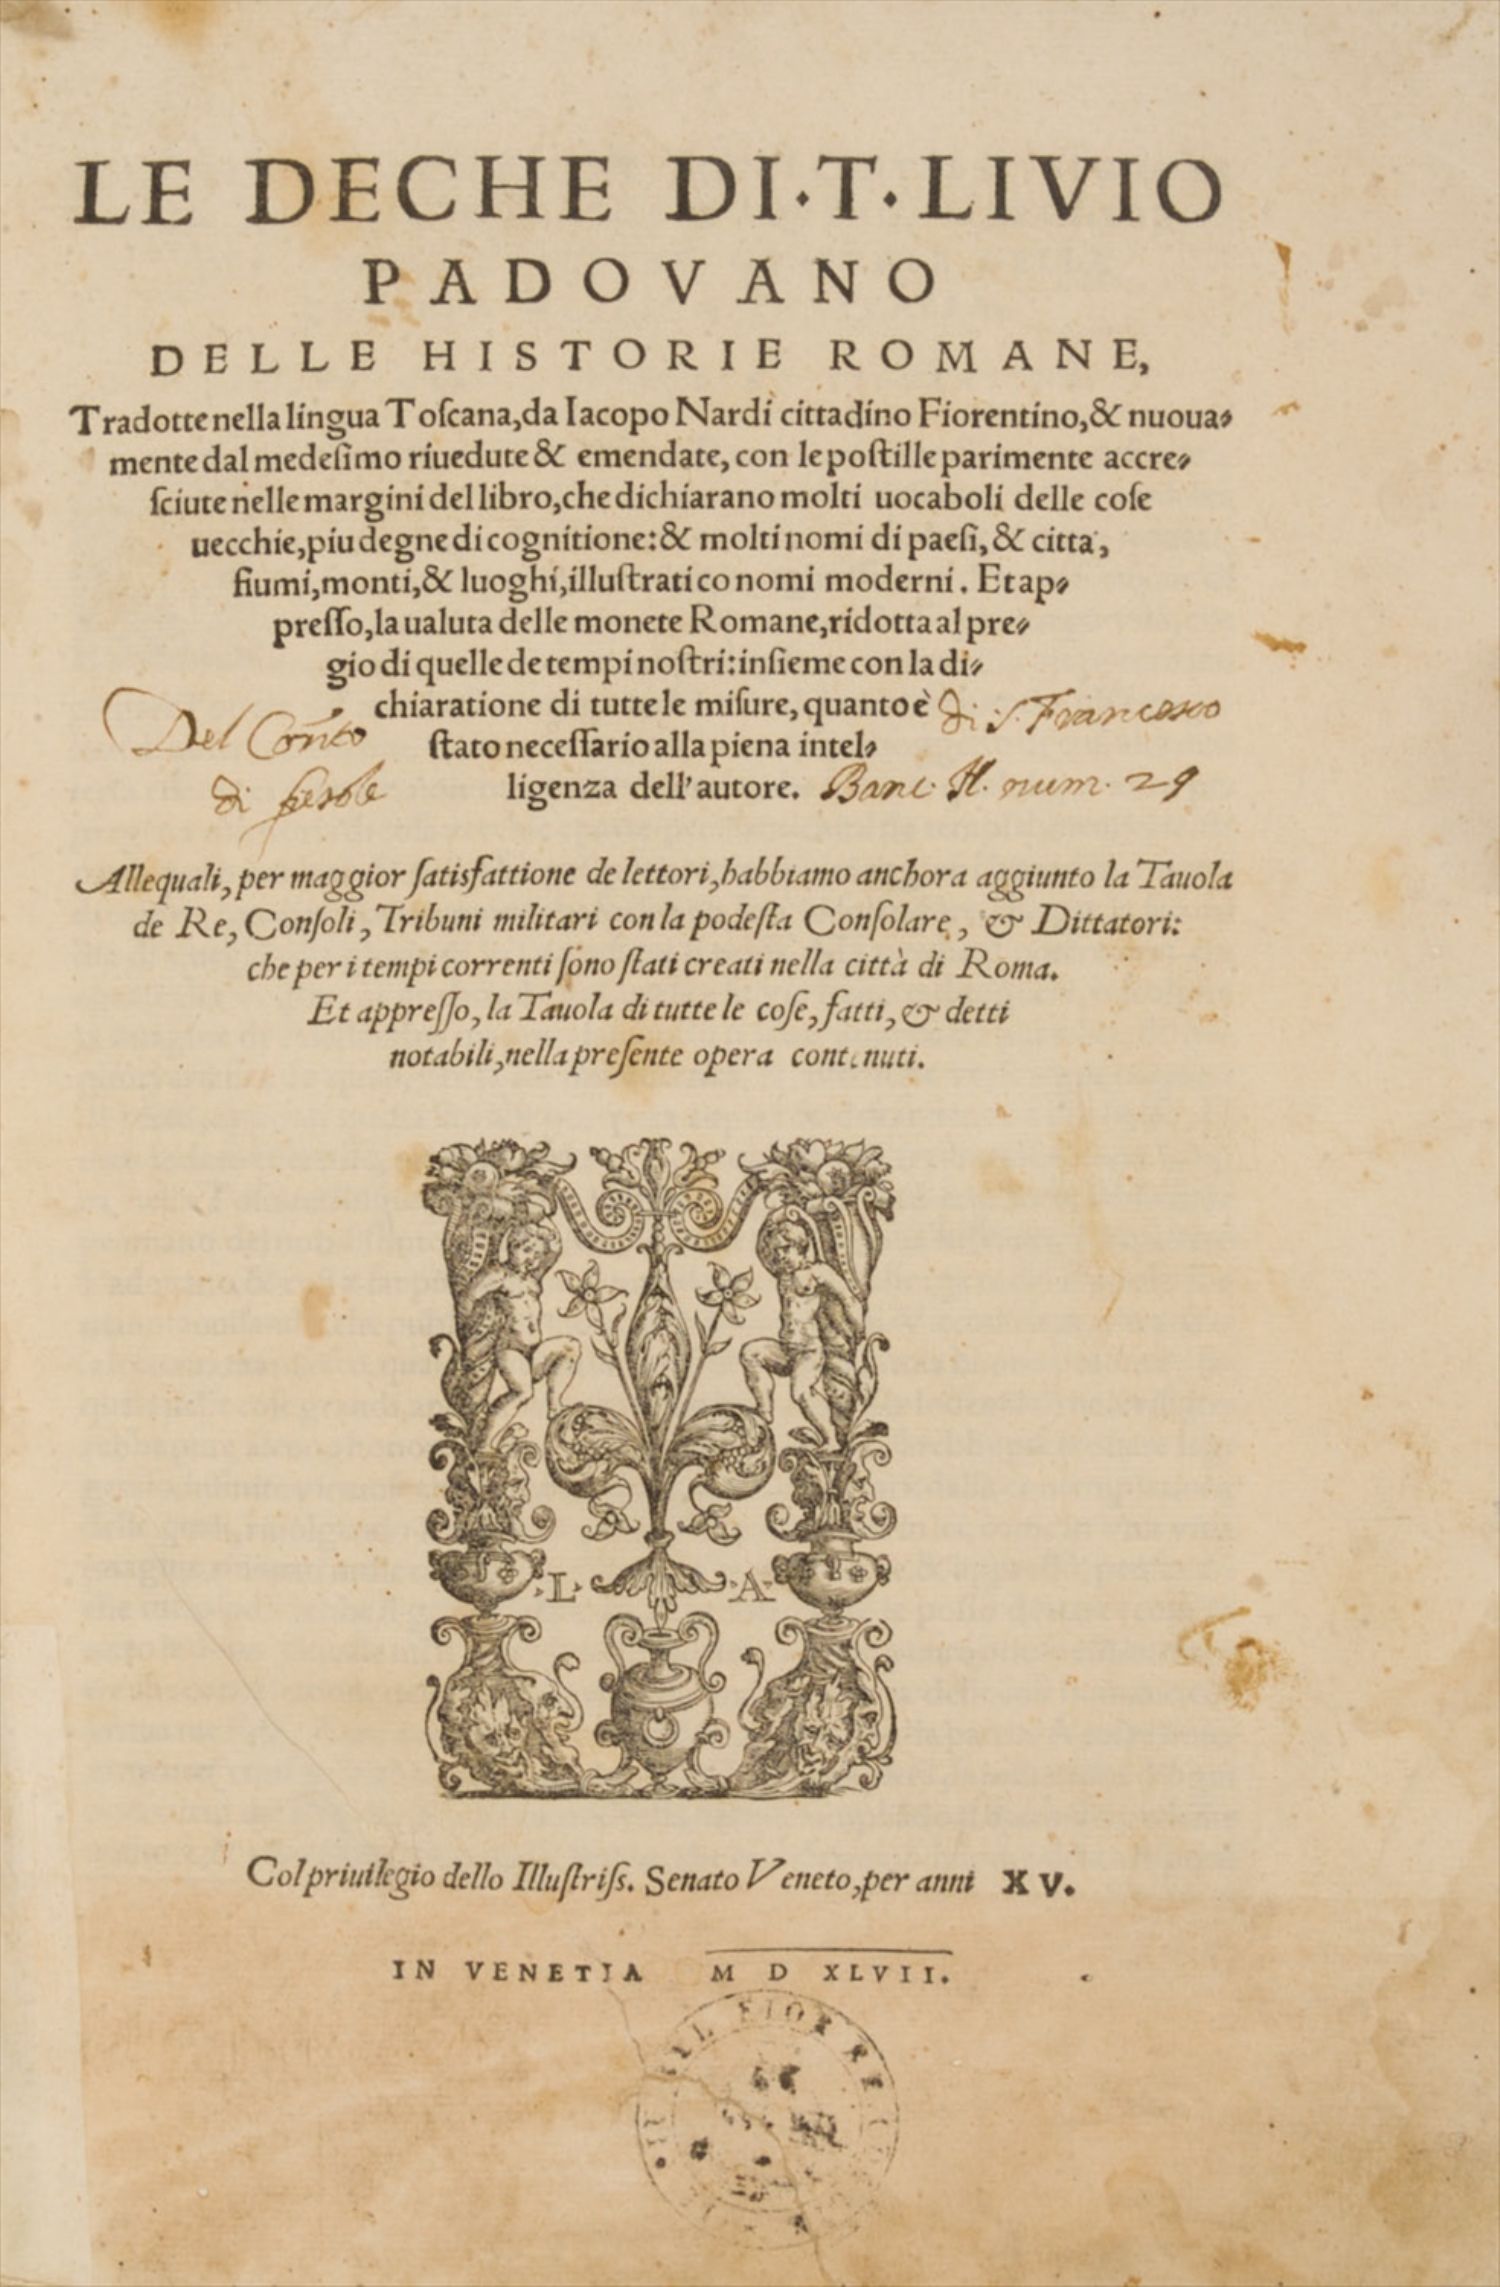 LE DECHE DI·T·LIVIO
PADOVANO
DELLE HISTORIE ROMANE,
Tradotte nella lingua Toſcana, da Iacopo Nardi cittadino Fiorentino, & nuoua-
mente dal medeſimo riuedute & emendate, con le poſtille parimente accre-
ſciute nelle margini del libro, che dichiarano molti uocaboli delle coſe
uecchie, piu degne di cognitione: & molti nomi di paeſi, & citta,
fiumi, monti, & luoghi, illuſtrati co nomi moderni. Et ap-
preſſo, la ualuta delle monete Romane, ridotta al pre-
gio di quelle de tempi noſtri: inſieme con la di-
chiaratione di tutte le miſure, quanto è
ſtato neceſſario alla piena intel-
ligenza dell'autore.
Del Con̄to di S. Francesco
di fiesole Banc. H. num. 29
Allequali, per maggior ſatisfattione de lettori, habbiamo anchora aggiunto la Tauola
de Re, Conſoli, Tribuni militari con la podeſta Conſolare, & Dittatori:
che per i tempi correnti ſono ſtati creati nella città di Roma.
Et appreſſo, la Tauola di tutte le coſe, fatti, & detti
notabili, nella preſente opera contenuti.
·L· ·A·
Col priuilegio dello Illuſtriſs. Senato Veneto, per anni XV.
IN VENETIA M D XLVII.